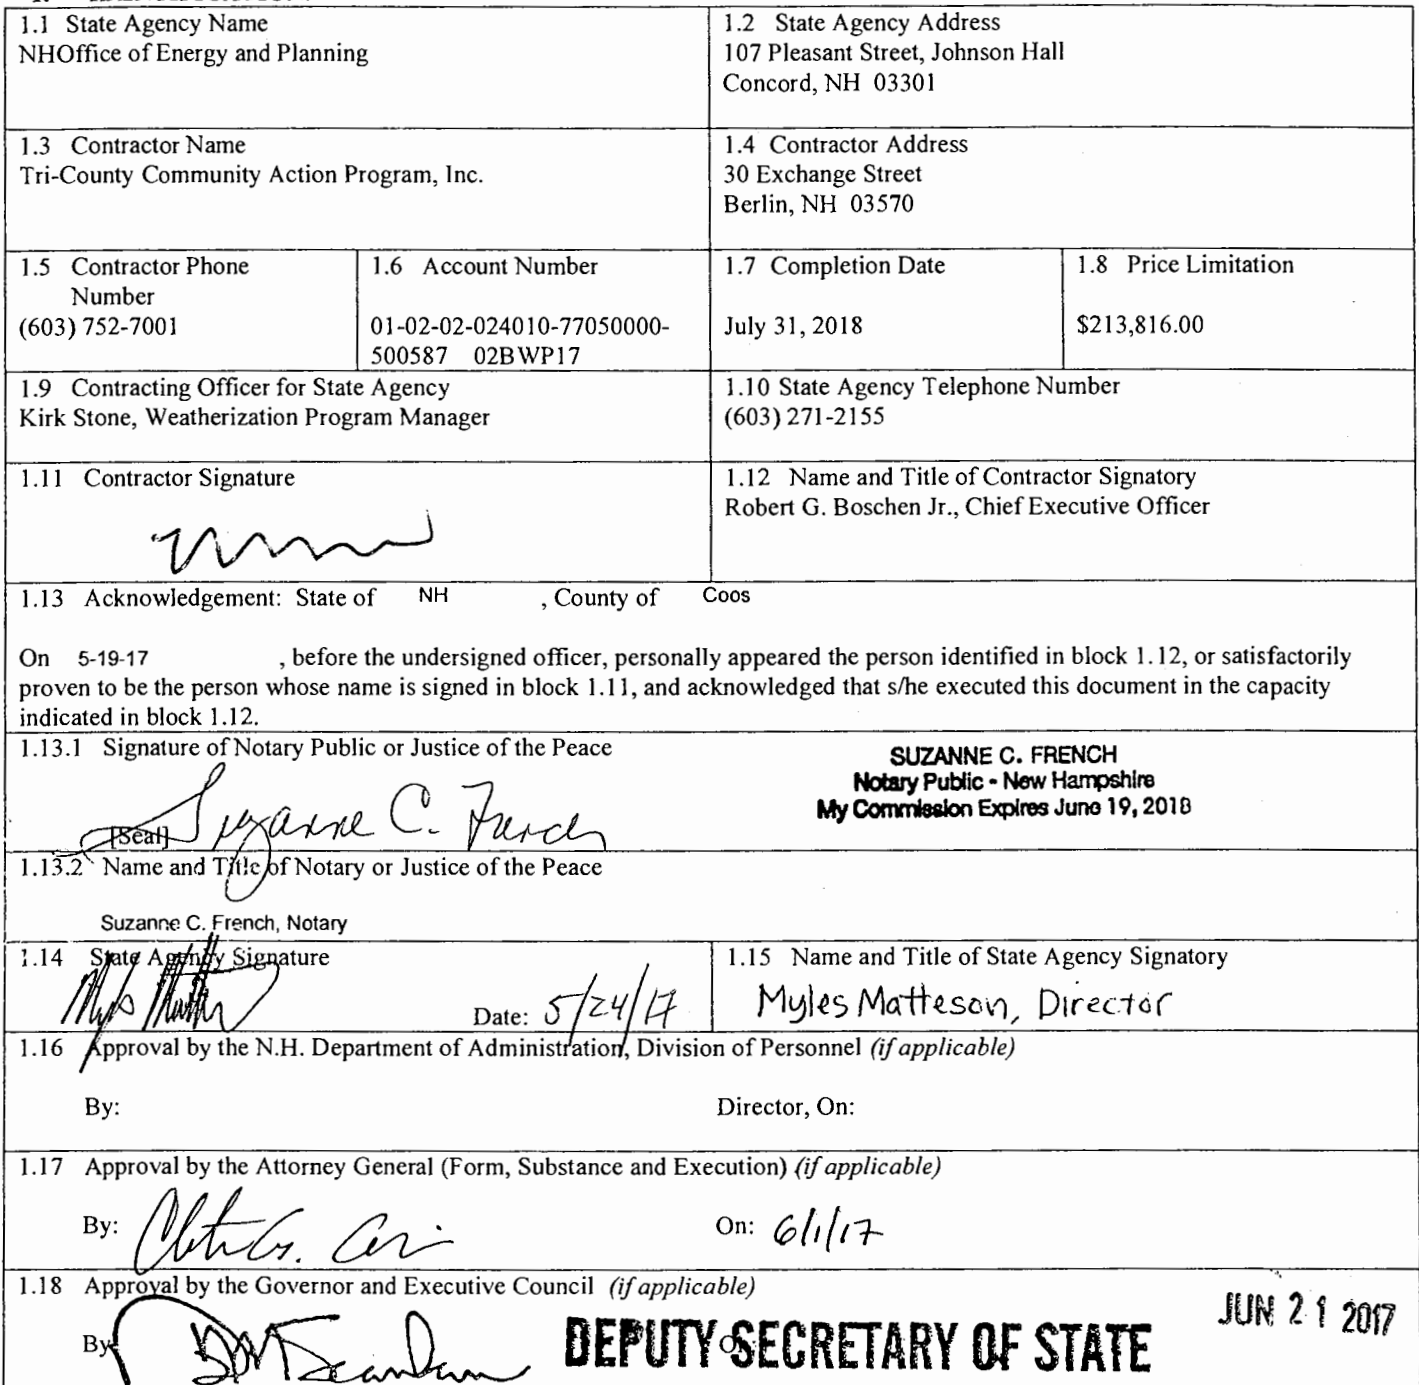 1.1 State Agency Name
NHOffice of Energy and Planning
1.2 State Agency Address
107 Pleasant Street, Johnson Hall
Concord, NH 03301
1.3 Contractor Name
Tri-County Community Action Program, Inc.
1.4 Contractor Address
30 Exchange Street
Berlin, NH 03570
1.5 Contractor Phone
Number
(603) 752-7001
1.6 Account Number
01-02-02-024010-77050000-
500587 02BWP17
1.7 Completion Date
July 31, 2018
1.8 Price Limitation
$213,816.00
1.9 Contracting Officer for State Agency
Kirk Stone, Weatherization Program Manager
1.10 State Agency Telephone Number
(603) 271-2155
1.11 Contractor Signature
1.12 Name and Title of Contractor Signatory
Robert G. Boschen Jr., Chief Executive Officer
1.13 Acknowledgement: State of NH , County of Coos
On 5-19-17 , before the undersigned officer, personally appeared the person identified in block 1.12, or satisfactorily
proven to be the person whose name is signed in block 1.11, and acknowledged that s/he executed this document in the capacity
indicated in block 1.12.
1.13.1 Signature of Notary Public or Justice of the Peace
SUZANNE C. FRENCH
Notary Public - New Hampshire
My Commission Expires June 19, 2018
[Seal] Suzanne C. French
1.13.2 Name and Title of Notary or Justice of the Peace
Suzanne C. French, Notary
1.14 State Agency Signature
Date: 5/24/17
1.15 Name and Title of State Agency Signatory
Myles Matteson, Director
1.16 Approval by the N.H. Department of Administration, Division of Personnel (if applicable)
By: Director, On:
1.17 Approval by the Attorney General (Form, Substance and Execution) (if applicable)
By: On: 6/1/17
1.18 Approval by the Governor and Executive Council (if applicable)
By
DEPUTY SECRETARY OF STATE
JUN 21 2017